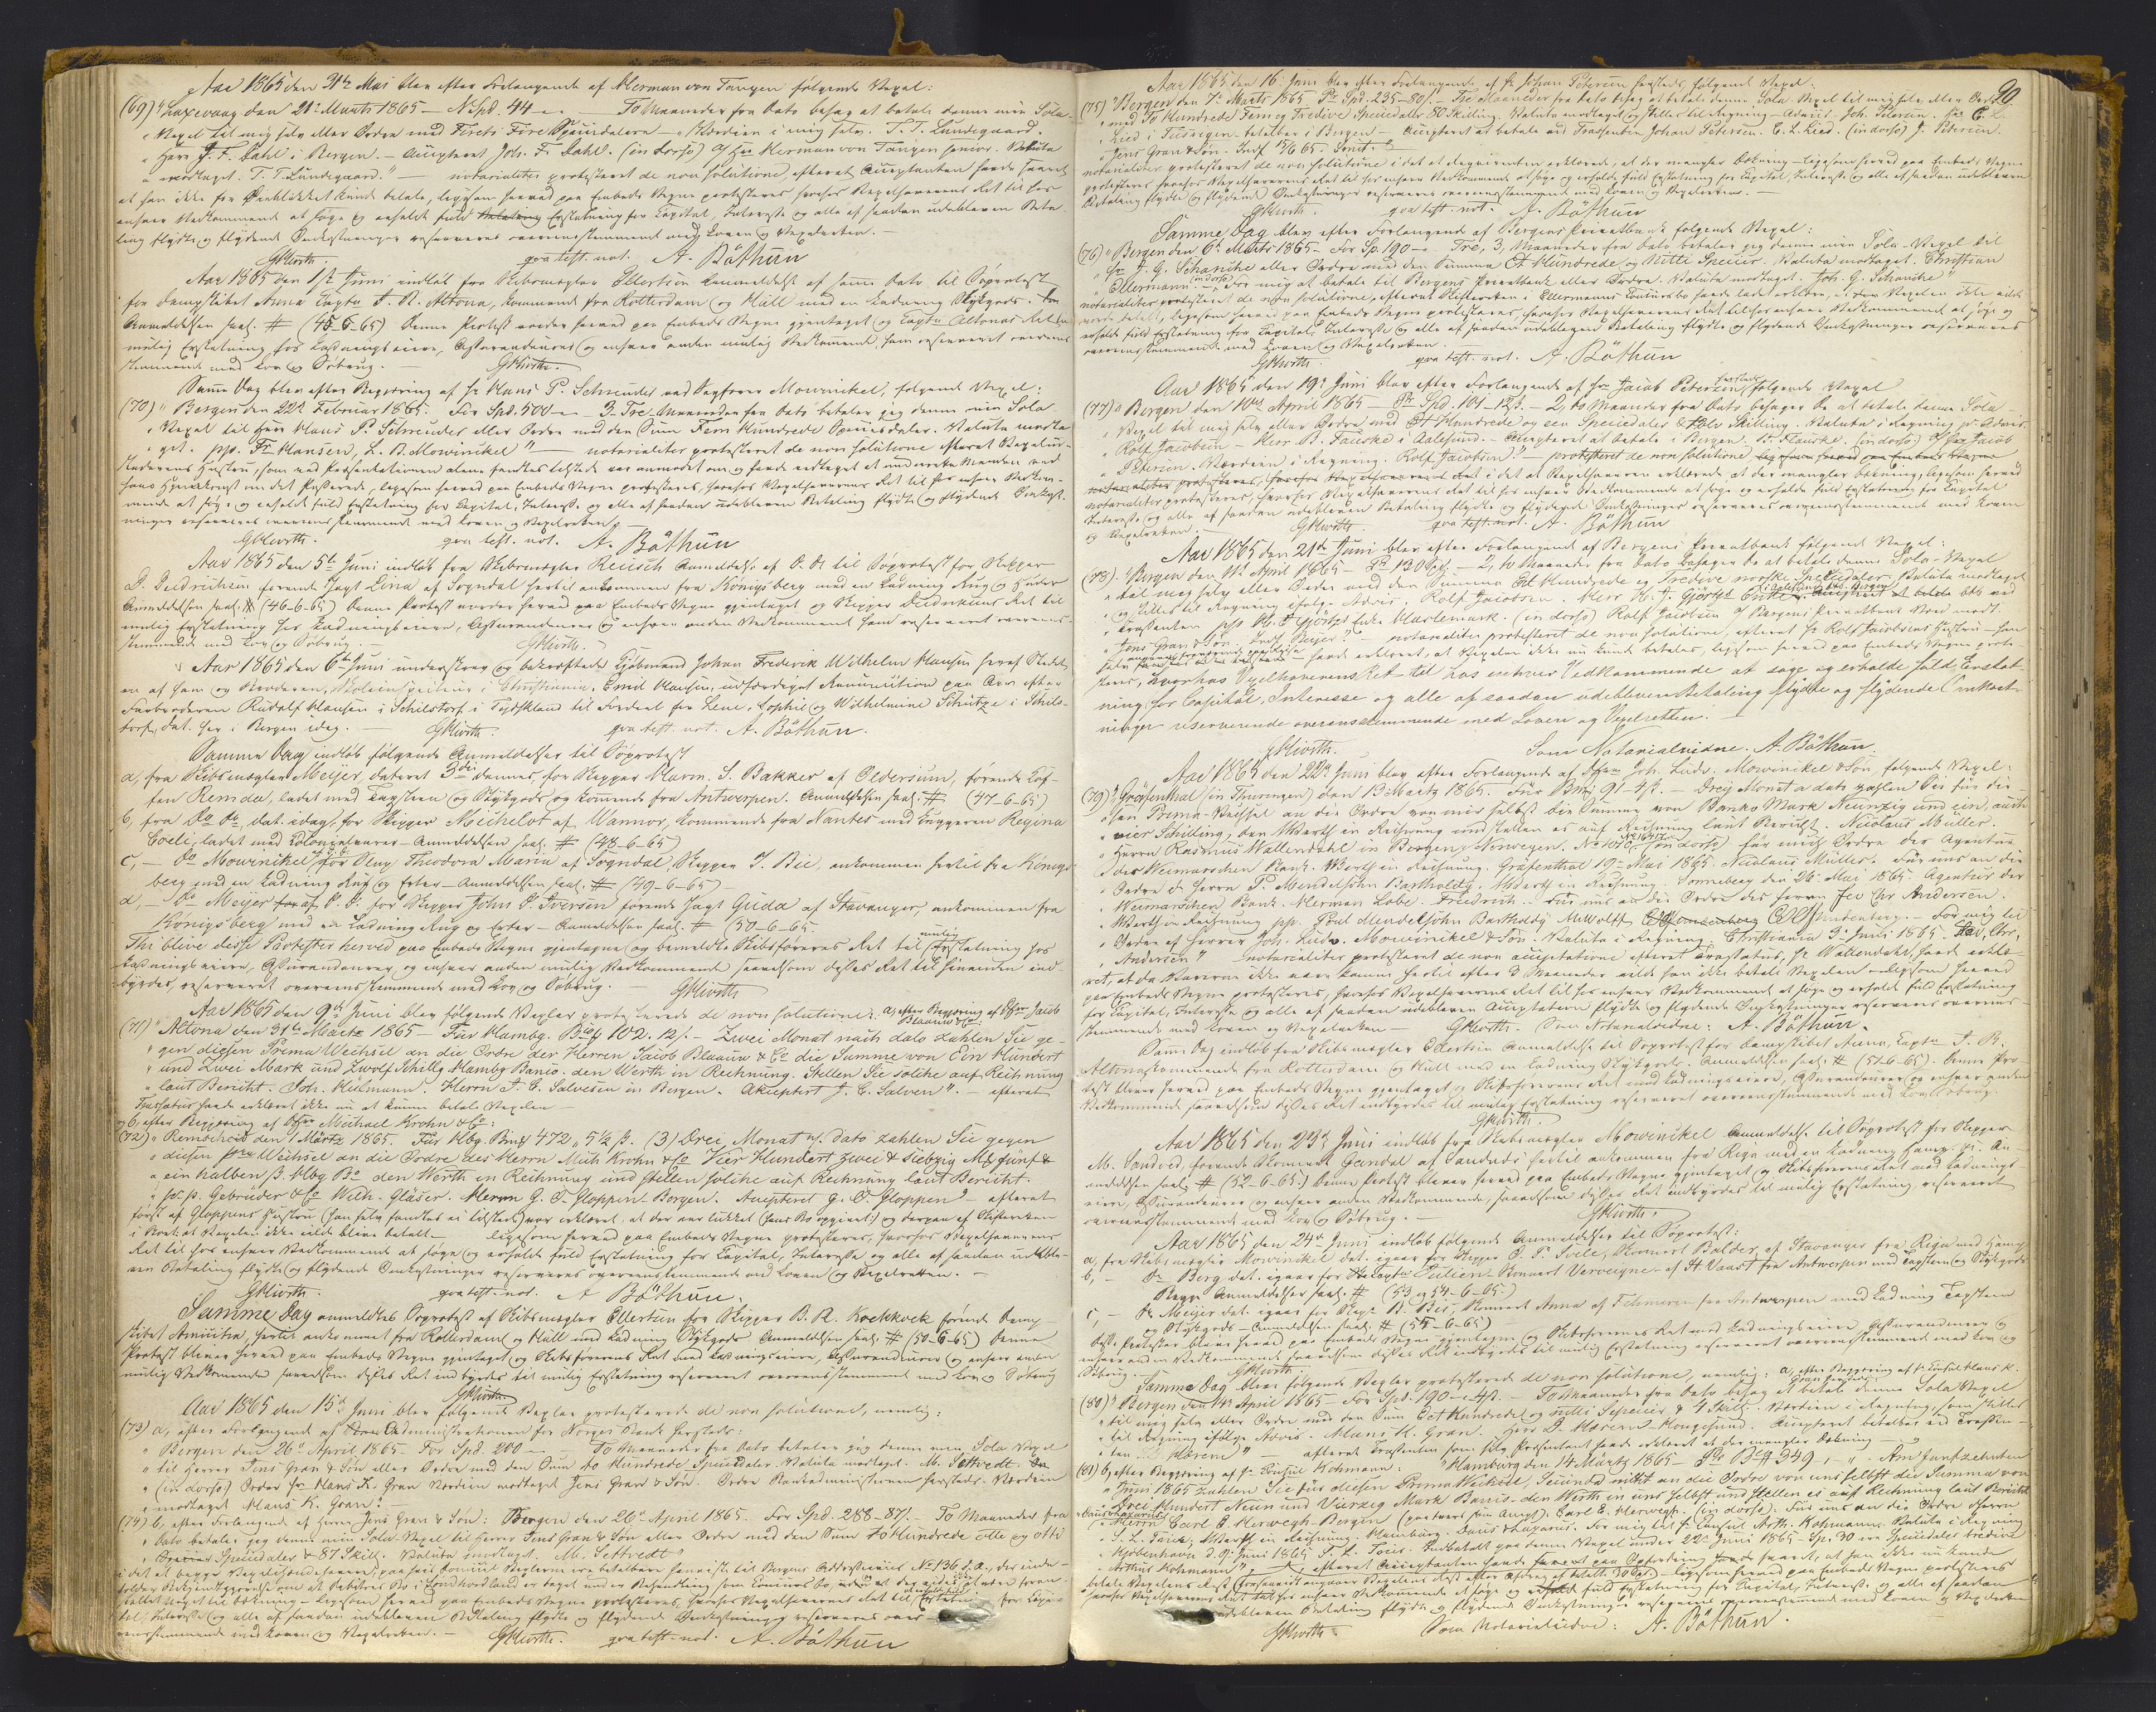 Aar 1865 den 31te Mai blev efter Forlangende af Herman von Tangen følgende Vexel:
(69) "Laxevaag den 21de Marts 1865 — NSpd. 44 — To Maaneder fra Dato behag at betale denne min Sola
" Vexel til mig selv eller Ordre med Fireti Fire Speciedalere — Værdien i mig selv. T. T. Lundegaard.
" Herr J. F. Dahl i Bergen. — Accepteret Joh. F. Dahl. (in dorso) Herman von Tangen senior. Valuta
" modtaget. T. T. Lundegaard." — notarialiter protesteret de non solutione, efterat Acceptanten havde svaret
at han ikke for Øieblikket kunde betale, ligesom herved paa Embeds Vegne protesteres hvorhos Vexelhaverens Ret til hos
enhver Vedkommende at søge og erholde fuld Erstatning for Capital, Interesse og alle af saadan udebleven Beta-
ling flydte og flydende Omkostninger reserveres overensstemmende med Loven og Vexelretten. —
qva test. not. A. Böthun
Aar 1865 den 1ste Juni indløb fra Skibsmægler Ellertsen Anmeldelse af samme Dato til Søprotest
for Dampskibet Anna Captn J. R. Altona, kommende fra Rotterdam og Hull med en Ladning Stykgods.
Anmeldelsen saal. # (45-6-65) Denne Protest vorder herved paa Embeds Vegne gjentaget og Captn Altonas Ret til
mulig Erstatning hos Ladningseiere, Assurandeurer og enhver anden mulig Vedkommende, som reserveret overens-
stemmende med Lov og Søbrug. —
Samme Dag blev efter Begjæring af Hr Hans P. Schreuder ved Sagfører Mowinckel, følgende Vexel:
(70) " Bergen den 22de Februar 1865. For Spd. 500 — 3. Tre Maaneder fra Dato betaler jeg denne min Sola
" Vexel til Herr Hans P. Schreuder eller Ordre med den Sum Fem Hundrede Speciesdaler. Valuta modta-
" get. pp. Fr. Hansen, L. B. Mowinckel" — notarialiter protesteret de non solutione efterat Vexelud-
ninger reserveres overensstemmende med Loven og Vexelretten
qva test. not. A. Böthun
Aar 1865 den 5te Juni indløb fra Skibsmægler Reusch Anmeldelse af D. D. til Søprotest for Skipper
D. Didrichsen førende Jagt Lina af Sogndal hertil ankommen fra Königsberg med en Ladning Rug og
Anmeldelsen saal. # (46-6-65) Denne Protest vorder herved paa Embeds Vegne gjentaget og Skipper Didrichsens Ret til
mulig Erstatning hos Ladningseiere, Assurandeurer og enhver anden Vedkommende som reserveret overens-
stemmende med Lov og Søbrug. —
Aar 1865 den 6te Juni underskrev og bekræftede Kjøbmand Johan Frederik Wilhelm Hansen
en af ham og Broderen, i Christiania, Emil Hansen, udfærdiget Renunciation paa Arv efter
Farbroderen Rudolf Hansen i Schilstorf i Tydskland til Fordeel for Lene, Sophie og Wilhelmine Schütze i Schils-
torf, dat. her i Bergen idag. — qva test. not. A. Böthun.
Samme Dag indløb følgende Anmeldelser til Søprotest
a, fra Skibsmægler Meijer, dateret 3die dennes, for Skipper Harm. S. Bakker af Oldersum, førende Kof-
fen Remda, ladet med Tagsteen og Stykgods og kommende fra Antwerpen. Anmeldelsen saal. # (47-6-65)
b, fra Do Do, dat. idag, for Skipper Michelot af Wannor, kommende fra Nantes med Luggeren Regina
Coeli, ladet med Colonialvarer — Anmeldelsen saal. # (48-6-65)
c, — Do Mowinckel for Slup Theodora Maria af Sogndal, Skipper J. Bie, ankommen hertil fra Königs-
berg med en Ladning Rug og Erter — Anmeldelsen saal. # (49-6-65) —
d, — Do Meyer af D. D. for Skipper John P. Iversen førende Jagt Guida af Stavanger, ankommen fra
Königsberg med en Ladning Rug og Erter — Anmeldelsen saal. # (50-6-65.
Thi blive disse Protester herved paa Embeds Vegne gjentagne og bemeldte Skibsføreres Ret til mulig Erstatning hos
Ladningseiere, Assurandeurer og enhver anden mulig Vedkommende saavelsom disses Ret til hinanden ind-
byrdes, reserveret overensstemmende med Lov og Søbrug. —
Aar 1865 den 9de Juni blev følgende Vexler protesterede de non solutione: a, efter Begjæring af Jacob
Blaauw & Co:
(71) " Altona den 31te Martz 1865 — Für Hambg. Bco 102. 12/. — Zwei Monat nach dato zahlen Sie ge-
" gen diesen Prima Wechsel an die Ordre der Herren Jacob Blaauw & Co die Summe von Ein Hundert
" und Zwei Mark und Zwölf Schillg Hambg Banco. den Werth in Rechnung. Stellen Sie solche auf Rechnung
" laut Bericht. Joh. Heilmann. Herrn J. C. Salvesen in Bergen. Akceptirt J. C. Salven". — efterat
Trassatus havde erklæret ikke nu at kunne betale Vexelen —
og b, efter Begjæring af Michael Krohn & Co:
(72) " Remscheid den 1 Märtz 1865. Für Hbg. Bco 472 „ 5½ ß. (3) Drei Monat nf. dato zahlen Sie gegen
" diesen Wechsel an die Ordre des Herrn Mich Krohn & Co Vier Hundert zwei & siebzig Mk fünf &
" ein halben ß. Hbg Bo den Werth in Rechnung und stellen solche auf Rechnung laut Bericht.
" Gebrüder & Co Wilh. Gläser. Herrn G. O. Gloppen Bergen. Accepteret G. O. Gloppen" — efterat
først af Gloppens Hustru (han selv fandtes ei tilstede) var erklæret, at der var lukket (hans Bo opgivet) og derpaa af Skifteretten
i Brev: at Vexelen ikke vilde blive betalt — ligesom herved paa Embeds Vegne protesteres, hvorhos Vexelhaverens
Ret til hos enhver Vedkommende at søge og erholde fuld Erstatning for Capital, Interesse og alle af saadan udeble-
ven Betaling flydte og flydende Omkostninger reserveres overensstemmende med Loven og Vexelretten. —
qva test. not. A Böthun.
Samme Dag anmeldtes Søprotest af Skibsmægler Ellertsen for Skipper B. R. Koekkoek førende Damp-
skibet Amicitia, hertil ankommet fra Rotterdam og Hull med Ladning Stykgods Anmeldelsen saal. # (50-6-65) Denne
Protest bliver herved paa Embeds Vegne gjentaget og Skibsførerens Ret mod Ladningseiere, Assurandeurer og enhver anden
mulig Vedkommende saavelsom disses Ret indbyrdes til mulig Erstatning reserveret overensstemmende med Lov og Søbrug
Aar 1865 den 15de Juni blev følgende Vexler protesterede de non solutione, nemlig:
(73) a, efter Forlangende af Administrationen for Norges Bank hersteds:
" Bergen den 26de April 1865. For Spd. 200 — To Maaneder fra Dato betaler jeg denne min Sola Vexel
" til Herrer Jens Gran & Søn eller Ordre med den Sum to Hundrede Speciedaler. Valuta modtaget. M. Settvedt.
" (in dorso) Ordre Hr Hans K. Gran Værdien modtaget Jens Gran & Søn. Ordre Bankadministrationen hersteds. Værdien
" modtaget Hans K. Gran." —
(74) b, efter Forlangende af Herrer Jens Gran & Søn: Bergen den 26de April 1865. For Spd. 288-87/. — To Maaneder fra
" Dato betaler jeg denne min Sola-Vexel til Herrer Jens Gran & Søn eller Ordre med den Sum to Hundrede otte og otti
" Speciedaler & 87 Skill. Valuta modtaget. M. Settvedt"
rensstemmende med Loven og Vexelretten. — qva test. not. A. Böthun
90
Aar 1865 den 16 Juni blev efter Forlangende af Hr Johan Petersen hersteds, følgende Vexel:
(75) "Bergen den 7de Marts 1865 Pr Spd. 235-80/. — Tre Maaneder fra Dato behag at betale denne Sola Vexel til mig selv eller Ordre
" med To Hundrede Fem og Tredive Speciedaler 80 Skilling. Valuta modtaget og stilles til Regning — Advis. Joh. Petersen. Hr C. L.
" Lied i Tusvigen betalbar i Bergen — Accepteret at betale ved Trassenten Johan Petersen. C. L. Lied. (in dorso) J. Petersen.
" Jens Gran & Søn. Indf 15/6 65.
notarialiter protesteret de non solutione i det at Requirenten erklærede, at der mangler Dækning — ligesom herved paa Embeds Vegne
protesteres hvorhos Vexelhaverens Ret til hos enhver Vedkommende at søge og erholde fuld Erstatning for Capital, Interesse og alle af saadan udebleven
Betaling flydte og flydende Omkostninger reserveres overensstemmende med Loven og Vexelretten. —
qva test. not. A. Böthun
Samme Dag blev efter Forlangende af Bergens Privatbank følgende Vexel:
(76) " Bergen den 6te Marts 1865 — For Sp. 190 — Tre, 3, Maaneder fra Dato betaler jeg denne min Sola-Vexel til
" Hr J. G. Schanche eller Ordre med den Summa Et Hundrede og Nitti Specier. Valuta modtaget. Christian
" Ellermann." (in dorso) For mig at betale til Bergens Privatbank eller Ordre. Valuta modtaget. Joh. G. Schanche"
notarialiter protesteret de non solutione, efterat Skifteretten i Ellermanns Concursbo havde ladet erklære, at Vexelen ikke vilde
vorde betalt, ligesom herved paa Embeds Vegne protesteres, hvorhos Vexelhaverens Ret til hos enhver Vedkommende at søge og
erholde fuld Erstatning for Capital, Interesse og alle af saadan udebleven Betaling flydte og flydende Omkostninger reserveres
overensstemmende med Loven og Vexelretten. —
qva test. not. A. Böthun
Aar 1865 den 19de Juni blev efter Forlangende af Hr Jacob Petersen hersteds, følgende Vexel
(77) " Bergen den 10de April 1865 — Pr Spd. 101-12ß. — 2, to Maaneder fra Dato behager De at betale denne Sola
" Vexel til mig selv eller Ordre med Et Hundrede og een Speciedaler & Tolv Skilling. Valuta i Regning pr Advis.
" Rolf Jacobsen — Herr B. Hauske i Aalesund. — Accepteret at betale i Bergen. B. Hauske. (in dorso) Jacob
" Petersen. Værdien i Regning. Rolf Jacobsen." — protesteret de non solutione ligesom herved paa Embeds Vegne
notarialiter protesteres, hvorhos Vexelhaverens Ret i det at Vexelhaveren erklærede at der mangler Dækning, ligesom herved
notarialiter protesteres, hvorhos Vexelhaverens Ret til hos enhver Vedkommende at søge og erholde fuld Erstatning for Capital
Interesse og alle af saadan udebleven Betaling flydte og flydende Omkostninger reserveres overensstemmende med Loven
og Vexelretten. — qva test. not. A. Böthun
Aar 1865 den 21de Juni blev efter Forlangende af Bergens Privatbank følgende Vexel:
(78). "Bergen den 11te April 1865 — Pr 130 Spd. — 2, to Maaneder fra Dato behager De at betale denne Sola-Vexel
" til mig selv eller Ordre med den Summa Et Hundrede og Tredive norske Speciedaler, Valuta modtaget
" og stilles til Regning ifølge Advis. Rolf Jacobsen. Herr H. J. Gjörtz Enke i Aalesund
" Trassenten pp H. J. Gjörtz Enke Harlemark. (in dorso) Rolf Jacobsen Bergens Privatbank Værd modt.
" Jens Gran & Søn. Indf. Beijer." — notarialiter protesteret de non solutione, efterat Hr Rolf Jacobsens Hustru — han
havde erklæret, at Vexelen ikke nu kunde betales, ligesom herved paa Embeds Vegne prote-
steres, hvorhos Vexelhaverens Ret til hos enhver Vedkommende at søge og erholde fuld Erstat-
ning for Capital, Interesse og alle af saadan udebleven Betaling flydte og flydende Omkost-
ninger reserverende overensstemmende med Loven og Vexelretten. —
Som Notarialvidne. A. Böthun.
Aar 1865 den 22de Juni blev efter Forlangende af Joh. Ludv. Mowinckel & Søn, følgende Vexel:
(79) " Gräfenthal (in Thüringen) den 13 Maerz 1865. Für 91-4ß. — Drey Monat a dato zahlen Sie für die-
" sen Prima-Wechsel an die Ordre von mir selbst die Summe von Banko Mark Neunzig und ein, auch
" vier Schilling, den Werth in Rechnung und stellen es auf Rechnung laut Bericht. Nicolaus Müller.
" Herrn Rasmus Wallendahl in Bergen, Norwegen. (in dorso) für mich Ordre der Agentur
" der Weimarschen Bank. Werth in Rechnung. Gräfenthal 19 Mai 1865. Nicolaus Müller. Für uns an die
" Ordre d. Herrn P. Mendelsohn Bartholdy. Werth in Rechnung. Sonneberg den 26 Mai 1865. Agentur der
" Weimarischen Bank. Herman Lobe. Friedrich. Für uns an die Ordre des Herrn Fer Chr. Andersen.
" Werth in Rechnung pp. Paul Mendelsohn Bartholdy. — For mig til
" Ordre af Herrer Joh. Ludv. Mowinckel & Søn. Valuta i Regning Christiania 9 Juni 1865. Chr.
" Andersen" notarialiter protesteret de non acceptatione efterat Trassatus, Hr Wallendahl, havde erklæ-
ret, at da Varerne ikke vare komne hertil efter 3 Maaneder vilde han ikke betale Vexelen — ligesom herved
paa Embeds Vegne protesteres, hvorhos Vexelhaverens Ret til hos enhver Vedkommende at søge og erholde fuld Erstatning
for Capital, Interesse og alle af saadan udebleven Acceptation flydte og flydende Omkostninger reserveres overens-
stemmende med Loven og Vexelretten — Som Notarialvidne: A. Böthun.
Samme Dag indløb fra Skibsmægler Ellertsen Anmeldelse til Søprotest for Dampskibet Anna, Captn J. R.
Altona, kommende fra Rotterdam og Hull med en Ladning Stykgods. Anmeldelsen saal. # (51-6-65). Denne Pro-
test bliver herved paa Embeds Vegne gjentaget og Skibsførerens Ret mod Ladningseiere, Assurandeurer og enhver anden
Vedkommende saavelsom disses Ret indbyrdes til mulig Erstatning reserveret overensstemmende med Lov & Søbrug.
Aar 1865 den 23de Juni indløb fra Skibsmægler Mowinckel Anmeldelse til Søprotest for Skipper
M. Sandved, førende Skonnert Gandal af Sandnæs hertil ankommen fra Riga med en Ladning Hamp pp. An-
meldelsen saal. # (52-6-65.) Denne Protest bliver herved paa Embeds Vegne gjentaget og Skibsførerens Ret mod Ladnings-
eiere, Assurandeurer og enhver anden Vedkommende, saavelsom disses Ret indbyrdes til mulig Erstatning reserveret
overensstemmende med Lov & Søbrug. —
Aar 1865 den 24de Juni indløb følgende Anmeldelser til Søprotest:
a, fra Skibsmægler Mowinckel dat. igaar for Skipper O. T. Svele, Skonnert Balder af Stavanger fra Riga med Hamp
b, — Do Berg dat. igaar for Captn Julien Skonnert Verveigne af St. Vaast fra Antwerpen med Tagsteen og Stykgods
Begge Anmeldelser saal. # (53 og 54-6-65.)
c, — Do Meijer dat. igaar for Skipr B. Bis, Skonnert Anna af Fehmern fra Antwerpen med Ladning Tagsteen
og Stykgods — Anmeldelsen saal. # (55-6-65)
Disse Protester blive herved paa Embeds Vegne gjentagne og Skibsførernes Ret mod Ladningseiere, Assurandeurer og
enhver anden Vedkommende saavelsom disses Ret indbyrdes til mulig Erstatning reserveret overensstemmende med Lov og
Søbrug. —
Samme Dag blev følgende Vexler protesterede de non solutione, nemlig: a, efter Begjæring af Hr Consul Hans K.
Gran
(80) " Bergen den 11te April 1865 — For Spd. 190 — 4ß. — To Maaneder fra Dato behag at betale denne Sola Vexel
" til mig selv eller Ordre med den Sum Eet Hundrede og nitti Specier & 4 Skill. Værdien i Regning, som stilles
" til Regning ifølge Advis. Hans K. Gran. Herr D. Hærem — Haugesund. Accepteret betalbar ved Trassen-
" ten Hærem" efterat Trassenten som selv Præsentant havde erklæret at der mangler Dækning — og
(81) b, efter Begjæring af Hr Consul Kohmann: "Hamburg den 14 Martz 1865 — Pr Bco 349 „ — „. Am funfzehnten
" Juni 1865 zahlen Sie für diesen Prima Wechsel, Secunda nicht an die Ordre von uns selbst die Summa von
" Drei Hundert Neun und Vierzig Mark Banco. den Werth in uns selbst und stellen es auf Rechnung laut Bericht
" Herrn Carl E. Herwegh — Bergen (in dorso). Für uns an die Ordre Herrn
" Hamburg. For mig til Hr Consul Arth. Kohmann. Valuta i Regning
" Kjöbenhavn d. 9 Juni 1865 Indbetalt paa denne Vexel under 22de Juni 1865 — Sp. 30 — Speciedaler tredive
" Arthur Kohmann" — efterat Acceptanten havde svaret, at han ikke nu kunde
hvorhos Vexelhaverens Ret til hos enhver Vedkommende at søge og erholde fuld Erstatning for Capital, Interesse, og alle af saadan
udebleven Betaling flydte og flydende Omkostninger reserveres overensstemmende med Loven og Vexelretten
Som Notarialvidne: A. Böthun.